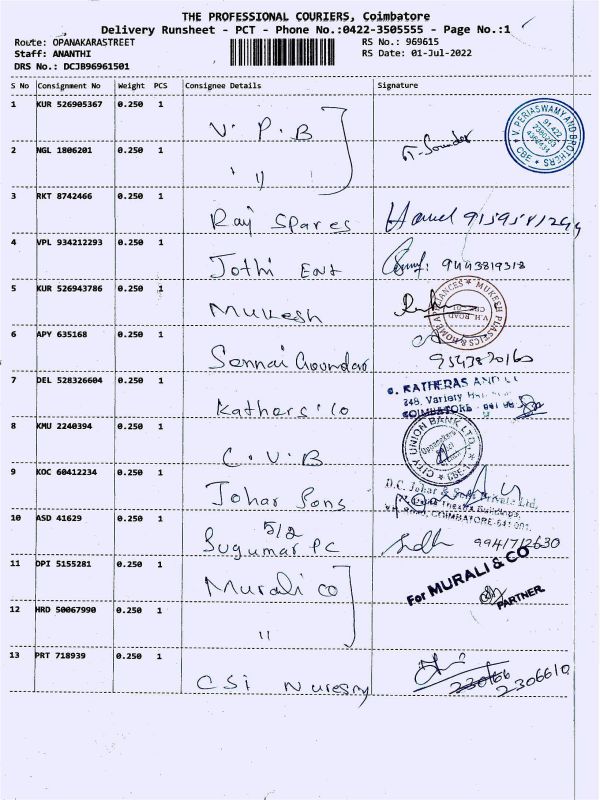 THE PROFESSIONAL COURIERS, Coimbatore
Delivery Runsheet - PCT - Phone No.:0422-3505555 - Page No.:1
Route: OPANAKARASTREET RS No.: 969615
Staff: ANANTHI RS Date: 01-Jul-2022
DRS No.: DCJB96961501
S No Consignment No Weight PCS Consignee Details Signature
1 KUR 526905367 0.250 1 V. P. B
V PERIASWAMY AND BROTHERS CBE
2 NGL 1806201 0.250 1 "
3 RKT 8742466 0.250 1 Raj Spares
4 VPL 934212293 0.250 1 Jothi Ent 9443819318
5 KUR 526943786 0.250 1 Mukesh
6 APY 635168 0.250 1 Sennai Goundar 9543870160
7 DEL 528326604 0.250 1 Kathers & Co
248, Variety
COIMBATORE
8 KMU 2240394 0.250 1 C. U. B
CITY UNION BANK LTD. CBE-1
9 KOC 60412234 0.250 1 Johar Sons
D.C. Johar &
COIMBATORE-641 001.
10 ASD 41629 0.250 1 Sugumar PC
11 DPI 5155281 0.250 1 Murali co
For MURALI & CO
PARTNER.
12 HRD 50067990 0.250 1 "
13 PRT 718939 0.250 1 CSI Nuresry 2306610